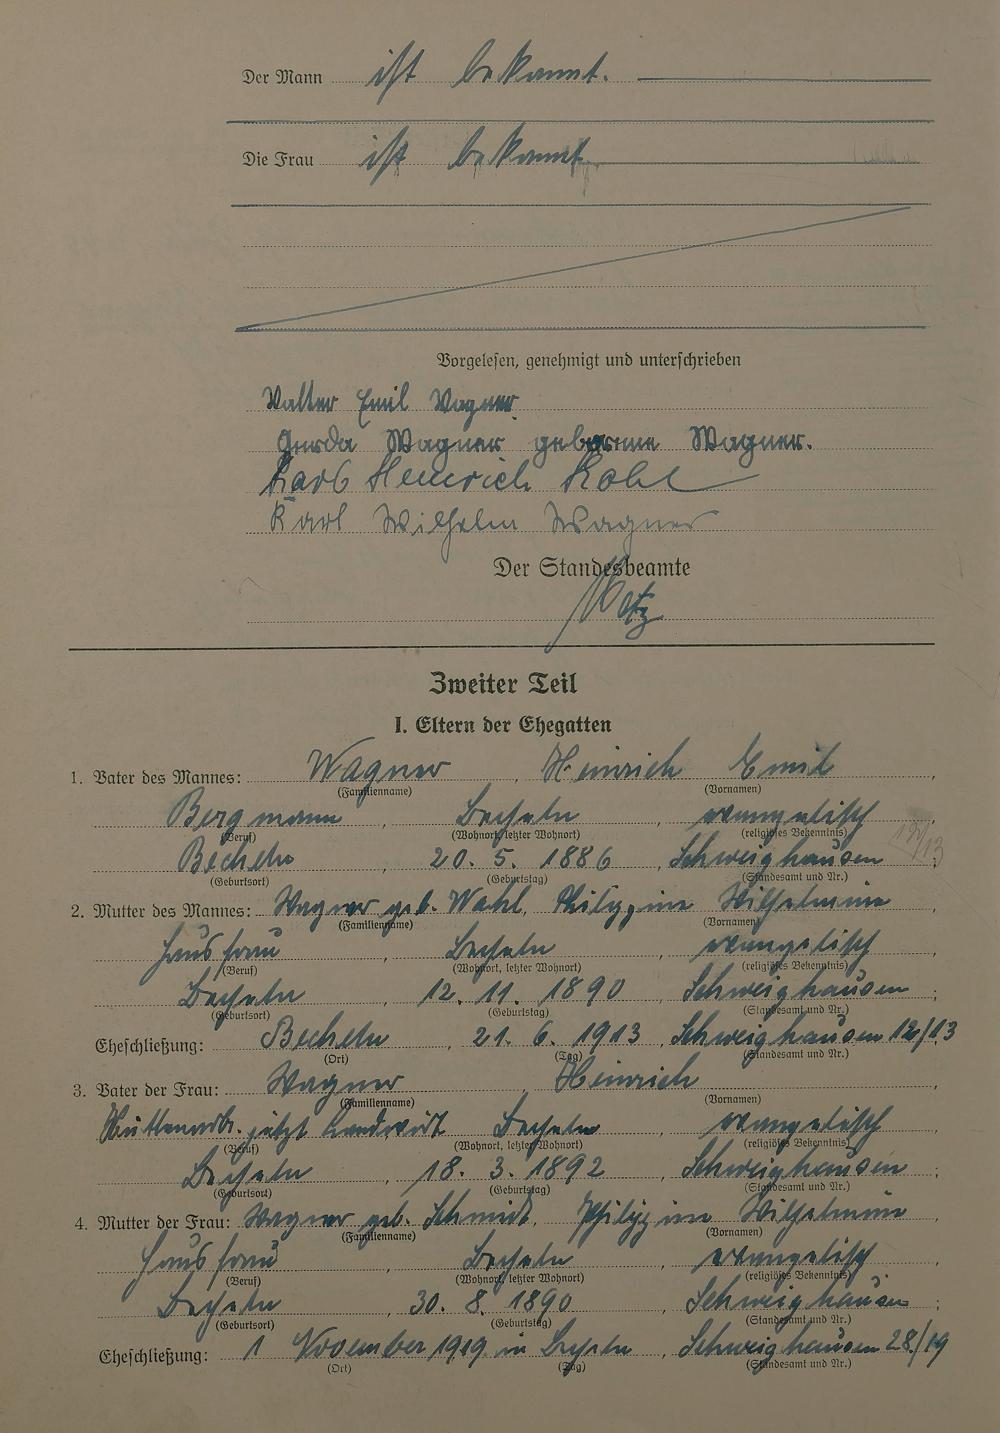 Der Mann ist bekannt.
Die Frau ist bekannt.
Vorgelesen, genehmigt und unterschrieben
Walter Emil Wagner
Gerda Wagner geborene Wagner.
Karl Heinrich
Karl Wilhelm Wagner
Der Standesbeamte
Zweiter Teil
I. Eltern der Ehegatten
1. Vater des Mannes: Wagner, Heinrich Emil,
(Familienname) (Vornamen)
Bergmann, Becheln, evangelisch,
(Beruf) (Wohnort, letzter Wohnort) (religiöses Bekenntnis)
Becheln, 20. 5. 1886, Schweighausen;
(Geburtsort) (Geburtstag) (Standesamt und Nr.)
2. Mutter des Mannes: Wagner geb. Wahl, Philippine Wilhelmine,
(Familienname) (Vornamen)
Hausfrau, Becheln, evangelisch,
(Beruf) (Wohnort, letzter Wohnort) (religiöses Bekenntnis)
Becheln, 12. 11. 1890, Schweighausen;
(Geburtsort) (Geburtstag) (Standesamt und Nr.)
Eheschließung: Becheln, 21. 6. 1913, Schweighausen 12/13
(Ort) (Tag) (Standesamt und Nr.)
3. Vater der Frau: Wagner, Heinrich,
(Familienname) (Vornamen)
Hüttenarb. jetzt Landwirt Becheln, evangelisch,
(Beruf) (Wohnort, letzter Wohnort) (religiöses Bekenntnis)
Becheln, 18. 3. 1892, Schweighausen;
(Geburtsort) (Geburtstag) (Standesamt und Nr.)
4. Mutter der Frau: Wagner geb. Schmidt, Philippine Wilhelmine,
(Familienname) (Vornamen)
Hausfrau, Becheln, evangelisch,
(Beruf) (Wohnort, letzter Wohnort) (religiöses Bekenntnis)
Becheln, 30. 8. 1890, Schweighausen;
(Geburtsort) (Geburtstag) (Standesamt und Nr.)
Eheschließung: 1 November 1919 in Becheln, Schweighausen 28/19
(Ort) (Tag) (Standesamt und Nr.)